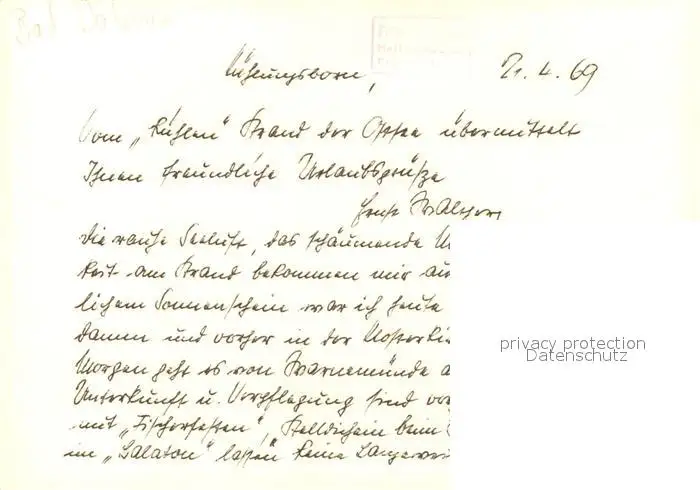 Bad
Kühlungsborn, 21.4.69
Vom „kühlen" Strand der Ostsee übermittelt
Ihnen freundliche Urlaubsgrüße
Ernst
die rauhe Seeluft, das schäumende
keit am Strand bekommen mir
lichem Sonnenschein war ich heute
damm und vorher in der Klosterki
Morgen geht es von Warnemünde a
Unterkunft u. Verpflegung sind vor
mit „Fischerfesten", Stelldichein beim
im „Balaton" laßen keine Langewei
privacy protection
Datenschutz